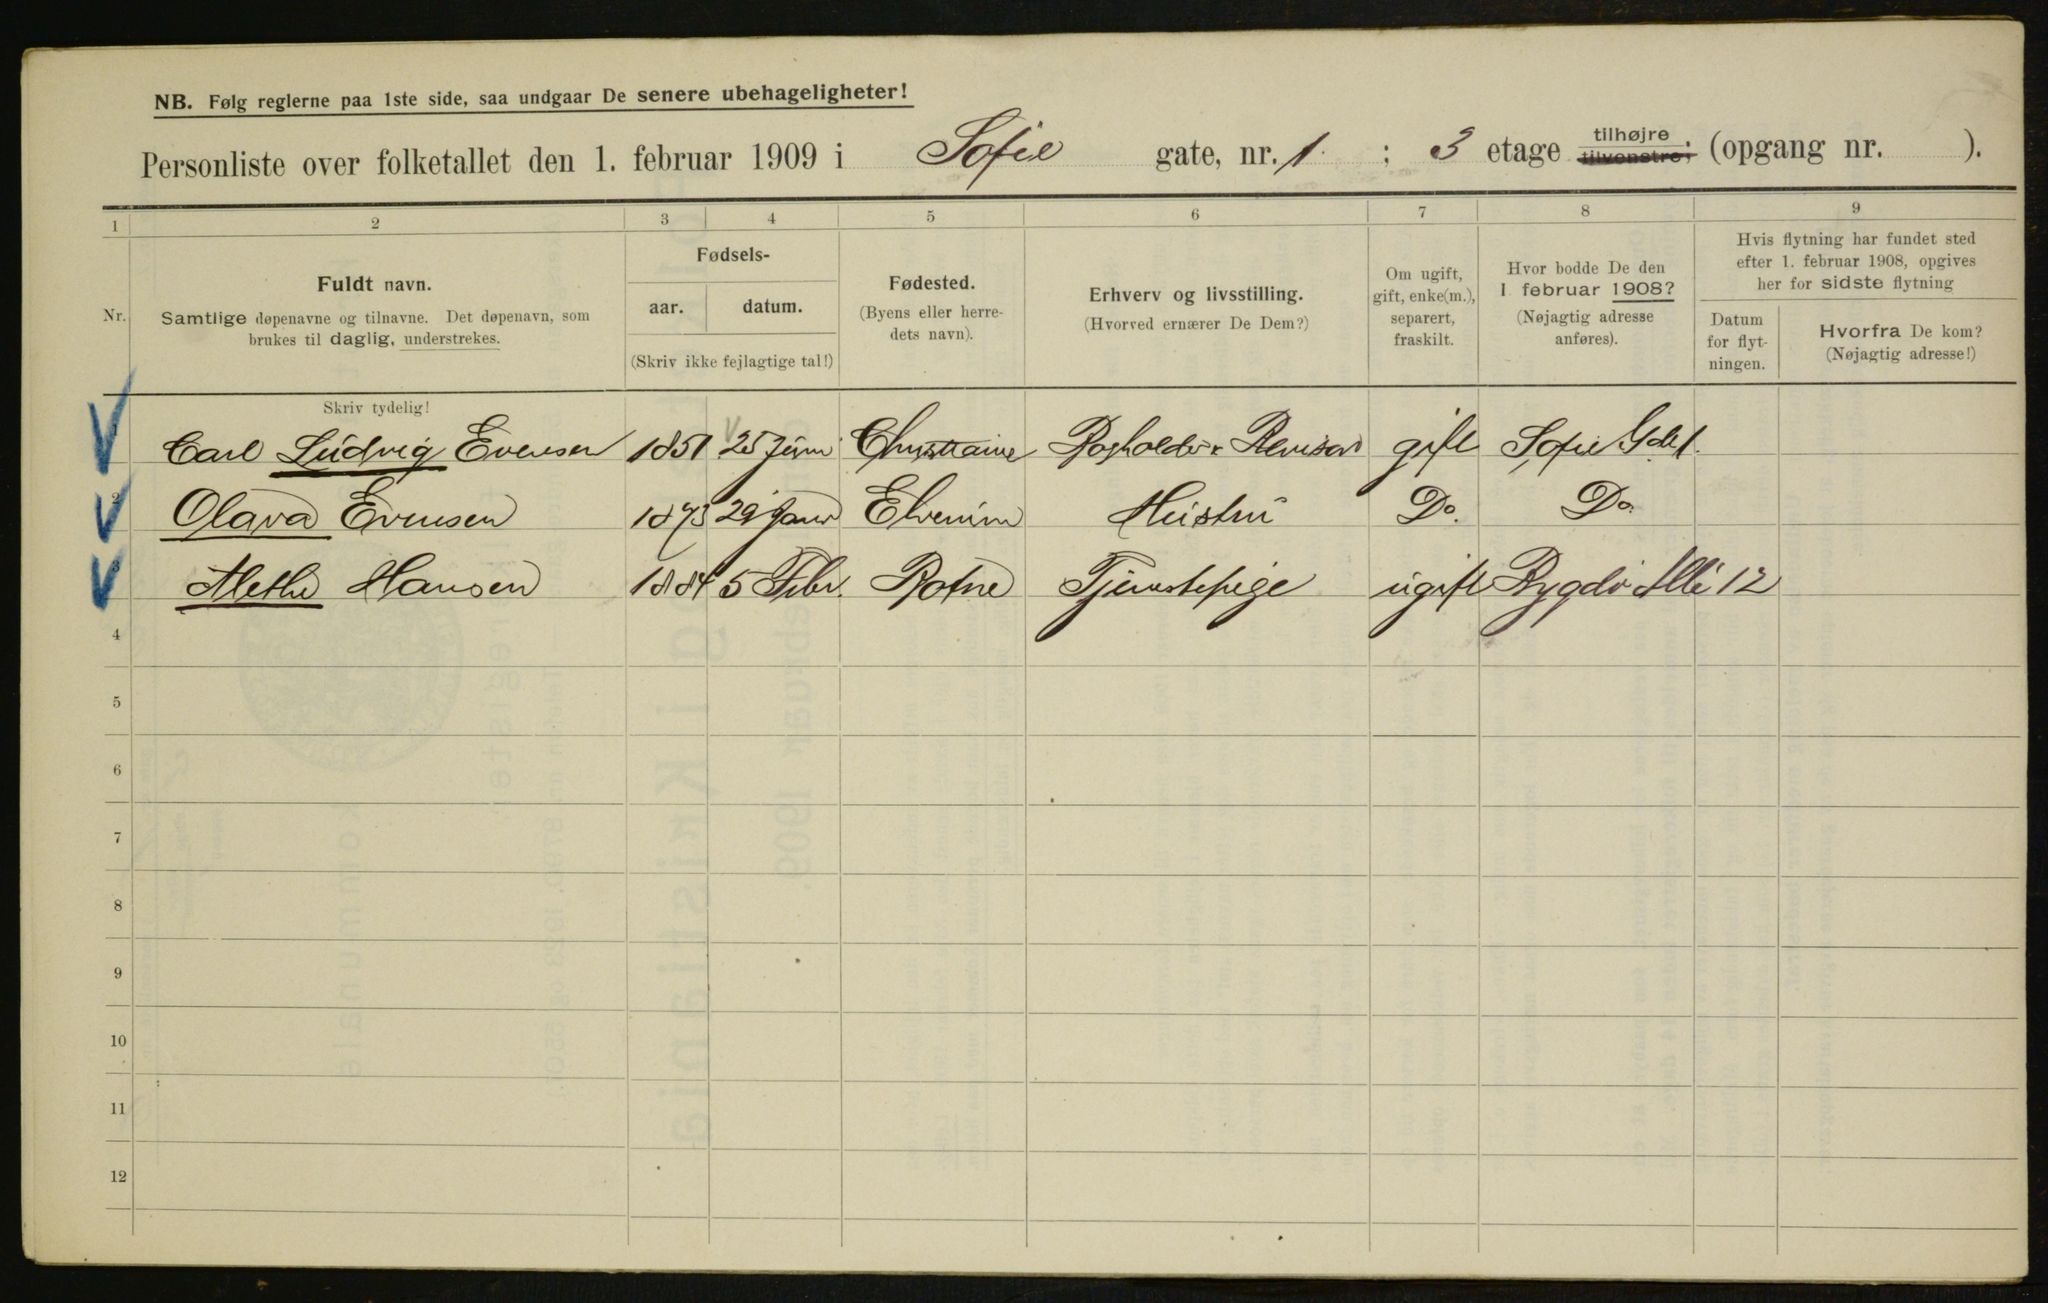 NB. Følg reglerne paa 1ste side, saa undgaar De senere ubehageligheter!
Personliste over folketallet den 1. februar 1909 i Sofie gate, nr. 1 ; 3 etage tilhøjre tilvenstre; (opgang nr. ).
1 2 3 4 5 6 7 8 9
Nr.
Fuldt navn.
Samtlige døpenavne og tilnavne. Det døpenavn, som
brukes til daglig, understrekes.
Fødsels-
aar. datum.
(Skriv ikke fejlagtige tal!)
Fødested.
(Byens eller herre-
dets navn).
Erhverv og livsstilling.
(Hvorved ernærer De Dem?)
Om ugift,
gift, enke(m.),
separert,
fraskilt.
Hvor bodde De den
1 februar 1908?
(Nøjagtig adresse
anføres).
Hvis flytning har fundet sted
efter 1. februar 1908, opgives
her for sidste flytning
Datum
for flyt-
ningen.
Hvorfra De kom?
(Nøjagtig adresse!)
Skriv tydelig!
Carl Ludvig Evensen 1851 25 Juni Christiania Bogholder & Revisor gift Sofie Gde 1.
2 Olava Evensen 1873 29 Janr Elverum Hustru Do. Do.
3 Alethe Hansen 1884 5 Febr. Botne Tjenestepige ugift Bygdø Allé 12
4
5
6
7
8
9
10
11
12